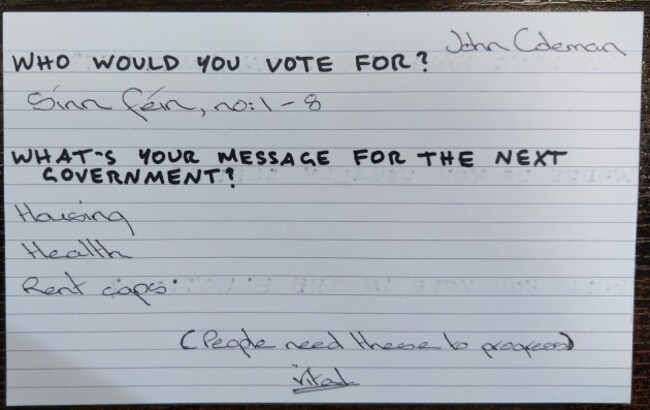 John Coleman
WHO WOULD YOU VOTE FOR?
Sinn féin, no: 1 - 8
WHAT'S YOUR MESSAGE FOR THE NEXT
GOVERNMENT?
Housing
Health
Rent caps.
(People need these to progress)
vital